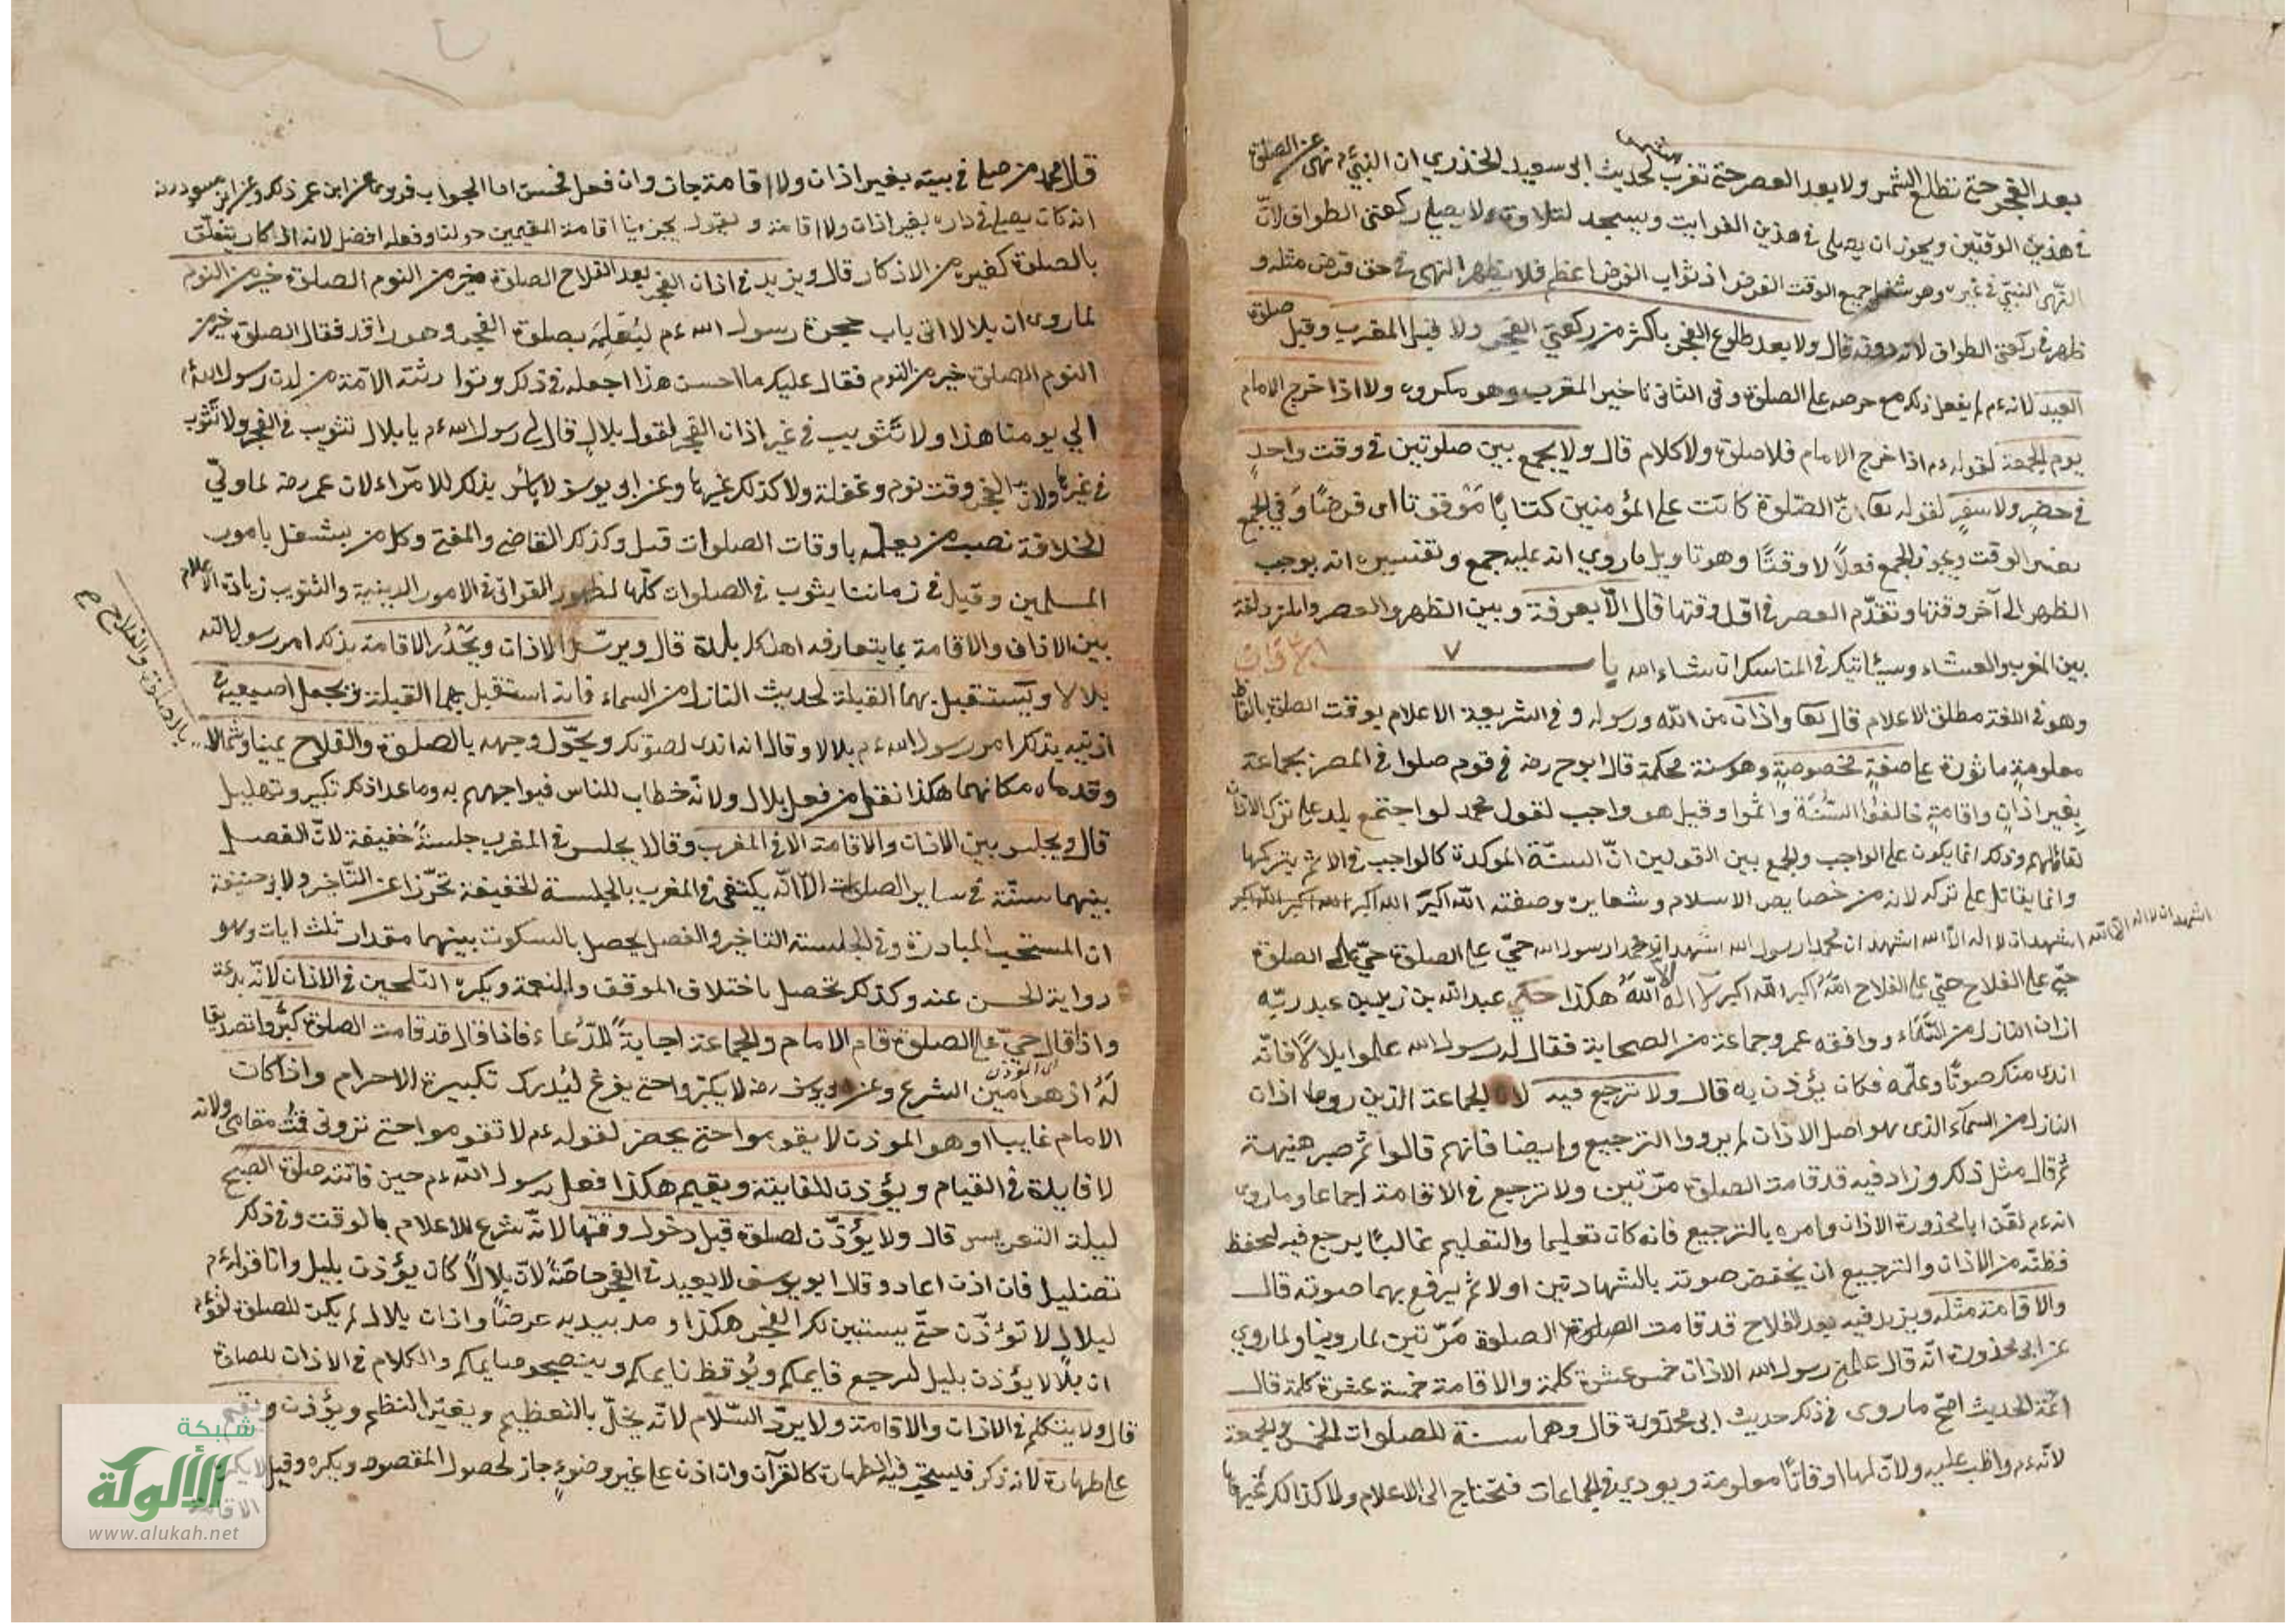 بعد الفجر حتى تطلع الشمس ولا بعد العصر حتى تغرب لحديث ابى سعيد الخدري ان النبي ءم نهى عن الصلوة
في هذين الوقتين ويجوز ان يصلى في هذين الفوايت ويسجد لتلاوة ولا يصلي ركعتي الطواف لانّ
النّهى في غيره وهو شغل جميع الوقت الفرض اذ ثواب الفرض اعظم فلا يظهر النهى في حق فرض مثله و
ظهر في ركعتي الطواف لانه دونه قال ولا بعد طلوع الفجر باكثر من ركعتي الفجر ولا قبل المغرب وقبل صلوة
العيد لانه ءم لم يفعل ذلك مع حرصه على الصلوة وفى الثانى تاخير المغرب وهو مكروه ولا اذا خرج الامام
يوم الجمعة لقوله ءم اذا خرج الامام فلا صلوة ولا كلام قال ولا يجمع بين صلوتين في وقت واحدٍ
في حضرٍ ولا سفرٍ لقوله تعا انّ الصّلوة كانت على المؤمنين كتابًا مَوْقوتا اى فرضًا وَفي الجمع
تغيير الوقت ويجوز الجمع فعلاً لا وقتًا وهو تاويل ما روي انه عليه جمع وتفسيره انه يوجب
الظهر الى آخر وقتها وتقدّم العصر في اوّل وقتها قال الّا بعرفة وبين الظهر والعصر والمزدلفة
بين المغرب والعشاء وسياتيك في المناسك ان شاء الله با الآذان
وهو في اللغة مطلق الاعلام قال تعا واذان من الله ورسوله وفي الشريعة الاعلام بوقت الصلوة بالفاظ
معلومةٍ ماثورة على صفةٍ مخصوصةٍ وهو سنة محكمة قال ابو ح رضه في قوم صلوا في المصر بجماعة
بِغير اذانٍ واقامةٍ خالفوا السُّنّة واثموا وقيل هو واجب لقول محمد لو اجتمع بلد على ترك الاذان
لقاتلهم وذلك انما يكون على الواجب والجمع بين القولين انّ السنّة الموكدة كالواجب في الاثم بتركها
وانما يقاتل على تركه لانه من خصايص الاسلام وشعايره وصفته الله اكبر الله اكبر الله اكبر الله اكبر
اشهد ان لا اله الا الله اشهد ان لا اله الّا الله اشهد ان محمدا رسول الله اشهد ان محمدا رسول الله حيّ على الصلوة حيّ على الصلوة
حيّ على الفلاح حيّ على الفلاح الله اكبر الله اكبر لا اله الّا اللهُ هكذا حكى عبد الله بن زيد بن عبد ربّه
اذان النازل من السّمَاء ووافقه عمر وجماعة من الصحابة فقال له رسول الله علموا بلالًا فانّه
اندى منك صوتًا وعلّمه فكان يؤذن به قال ولا ترجيع فيه لان الجماعة الذين رووا اذان
النازل من السمآء الذى هو اصل الاذان لم يرووا الترجيع وايضا فانهم قالوا ثم صبر هنيهة
ثم قال مثل ذلك وزاد فيه قد قامت الصلوة مرّتين ولا ترجيع في الاقامة اجماعا وما روى
انه ءم لقّن ابا محذورة الاذان وامره بالترجيع فانه كان تعليما والتعليم غالبًا يرجع فيه ليحفظ
فظنّه من الاذان والترجيع ان يخفض صوته بالشهادتين اولا ثم يرفع بهما صوته قال
والاقامة مثله ويزيد فيه بعد الفلاح قد قامت الصلوة الصلوة مَرّتين لما روينا ولما روي
عن ابى محذورة انّه قال علمنى رسول الله الاذان خمس عشرة كلمة والاقامة خمسة عشرة كلمة قال
ائمّة الحديث اصحّ ما روى في ذلك حديث ابى محذورة قال وهما سنة للصلوات الخمس والجمعة
لانّه ءم واظب عليه ولانّ لها اوقاتًا معلومة ويودى في الجماعات فتحتاج الى الاعلام ولا كذالك غيرها
قال محمد من صلى في بيته بغير اذان ولا اقامة جاز وان فعل فحسن اما الجواب فروى عن ابن عمر ذلك وعن ابن مسعود رضه
انه كان يصلي في داره بغير اذان ولا اقامة ويقول يجزينا اقامة المقيمين حولنا وفعله افضل لانه اذكار يتعلّق
بالصلوة كغيره من الاذكار قال ويزيد في اذان الفجر بعد الفلاح الصلوة خير من النوم الصلوة خير من النوم
لما روى ان بلالا اتى باب حجرة رسول الله ءم ليُعلِمَه بصلوة الفجر وهو راقد فقال الصلوة خير من
النوم الصلوة خير من النوم فقال عليكم ما احسن هذا اجعله في ذلك وتوارثته الامّة من لدن رسول الله ءم
الي يومنا هذا ولا تَثْويب في غير اذان الفجر لقول بلالٍ قال لى رسول الله ءم يا بلال تثوب في الفجر ولا تُثوب
في غيرها ولانّ الفجر وقت نوم وغفلة ولا كذلك غيرها وعن ابى يوسف لا بائس بذلك للامرآء لان عمر رضه لما ولّي
الخلافة نصب من يعلمه باوقات الصلوات قبل وكذلك القاضى والمفتى وكل من يشتغل بامور
المسلمين وقيل في زماننا يثوب في الصلوات كلّها لظهور التوانى في الامور الدينية والتثويب زيادة الاعلام
بين الاذان والاقامة بما يتعارفه اهل كل بلدة قال ويرسّل الاذان ويحْدُر الاقامة بذلك امر رسول الله
بلالا ويَستقبل بهما القبلة لحديث النازل من السماء فانه استقبل بهما القبلة ويجعل اصبعيه في
بالصلوة والفلاح ح
اذنيه بذلك امر رسول الله ءم بلالا وقال انه اندى لصوتك ويحّول وجهه بالصلوة والفلاح يمينا وشمالا
وقدماه مكانهما هكذا نقل من فعل بلال ولانّه خطاب للناس فيواجههم به وما عدا ذلك تكبير وتهليل
قال ويجلس بين الاذان والاقامة الا في المغرب وقالا يجلس في المغرب جلسةً خفيفة لانّ الفصل
بينهما سنّة في ساير الصلوات الّا انّه يكتفى في المغرب بالجلسة الخفيفة تحرّزا عن التّاخر ولابى حنيفة
ان المستحب المبادرة وفى الجلسة التاخير والفصل يحصل بالسكوت بينهما مقدار ثلث ايات وهو
رواية الحسن عنه وكذلك تحصل باختلاف الموقف والنغمة ويكره التلحين في الاذان لانّه بدعة
واذا قال حيّ على الصلوة قام الامام والجماعة اجابةً للدّعاء فاذا قال قد قامت الصلوة كبّروا تصديقا
لَهُ اذ هو امين الشرع وعن ابى يوسف رضه لا يكبّروا حتى يفرغ ليُدرك تكبيرة الاحرام واذا كان
الامام غايبا او هو الموذن لا يقوموا حتى يحضر لقوله ءم لا تقوموا حتى ترونى قمْتُ مقامى ولانه
لا فايدة في القيام ويؤذن للفايتة ويقيم هكذا فعل رسول الله ءم حين فاتته صلوة الصبح
ليلة التعريس قال ولا يُؤذّن لصلوة قبل دخول وقتها لانّه شرع للاعلام بالوقت وفى ذلك
تضليل فان اذن اعاد وقال ابو يوسف لا يعيد في الفجر خاصّةً لانّ بلالًا كان يؤذن بليل ولنا قوله ءم
لبلال لا تؤذّن حتّى يستبين لك الفجر هكذا ومد بيديه عرضًا واذان بلال لم يكن للصلوة لقوله ءم
ان بلالا يؤذن بليل ليرجع قايمكم ويُوقظ نايمكم ويتسحر صايمكم والكلام في الاذان للصلوة
قال ولا يتكلم في الاذان والاقامة ولا يردّ السّلام لانّه يخلّ بالتعظيم ويغيّر النظم ويؤذن ويقيم
على طهارة لانه ذكر فيستحبّ فيه الطهارة كالقرآن وان اذن على غير وضوءٍ جاز لحصول المقصود ويكره وقيل لا يكره
الاقامة
شبكة
الألوكة
www.alukah.net